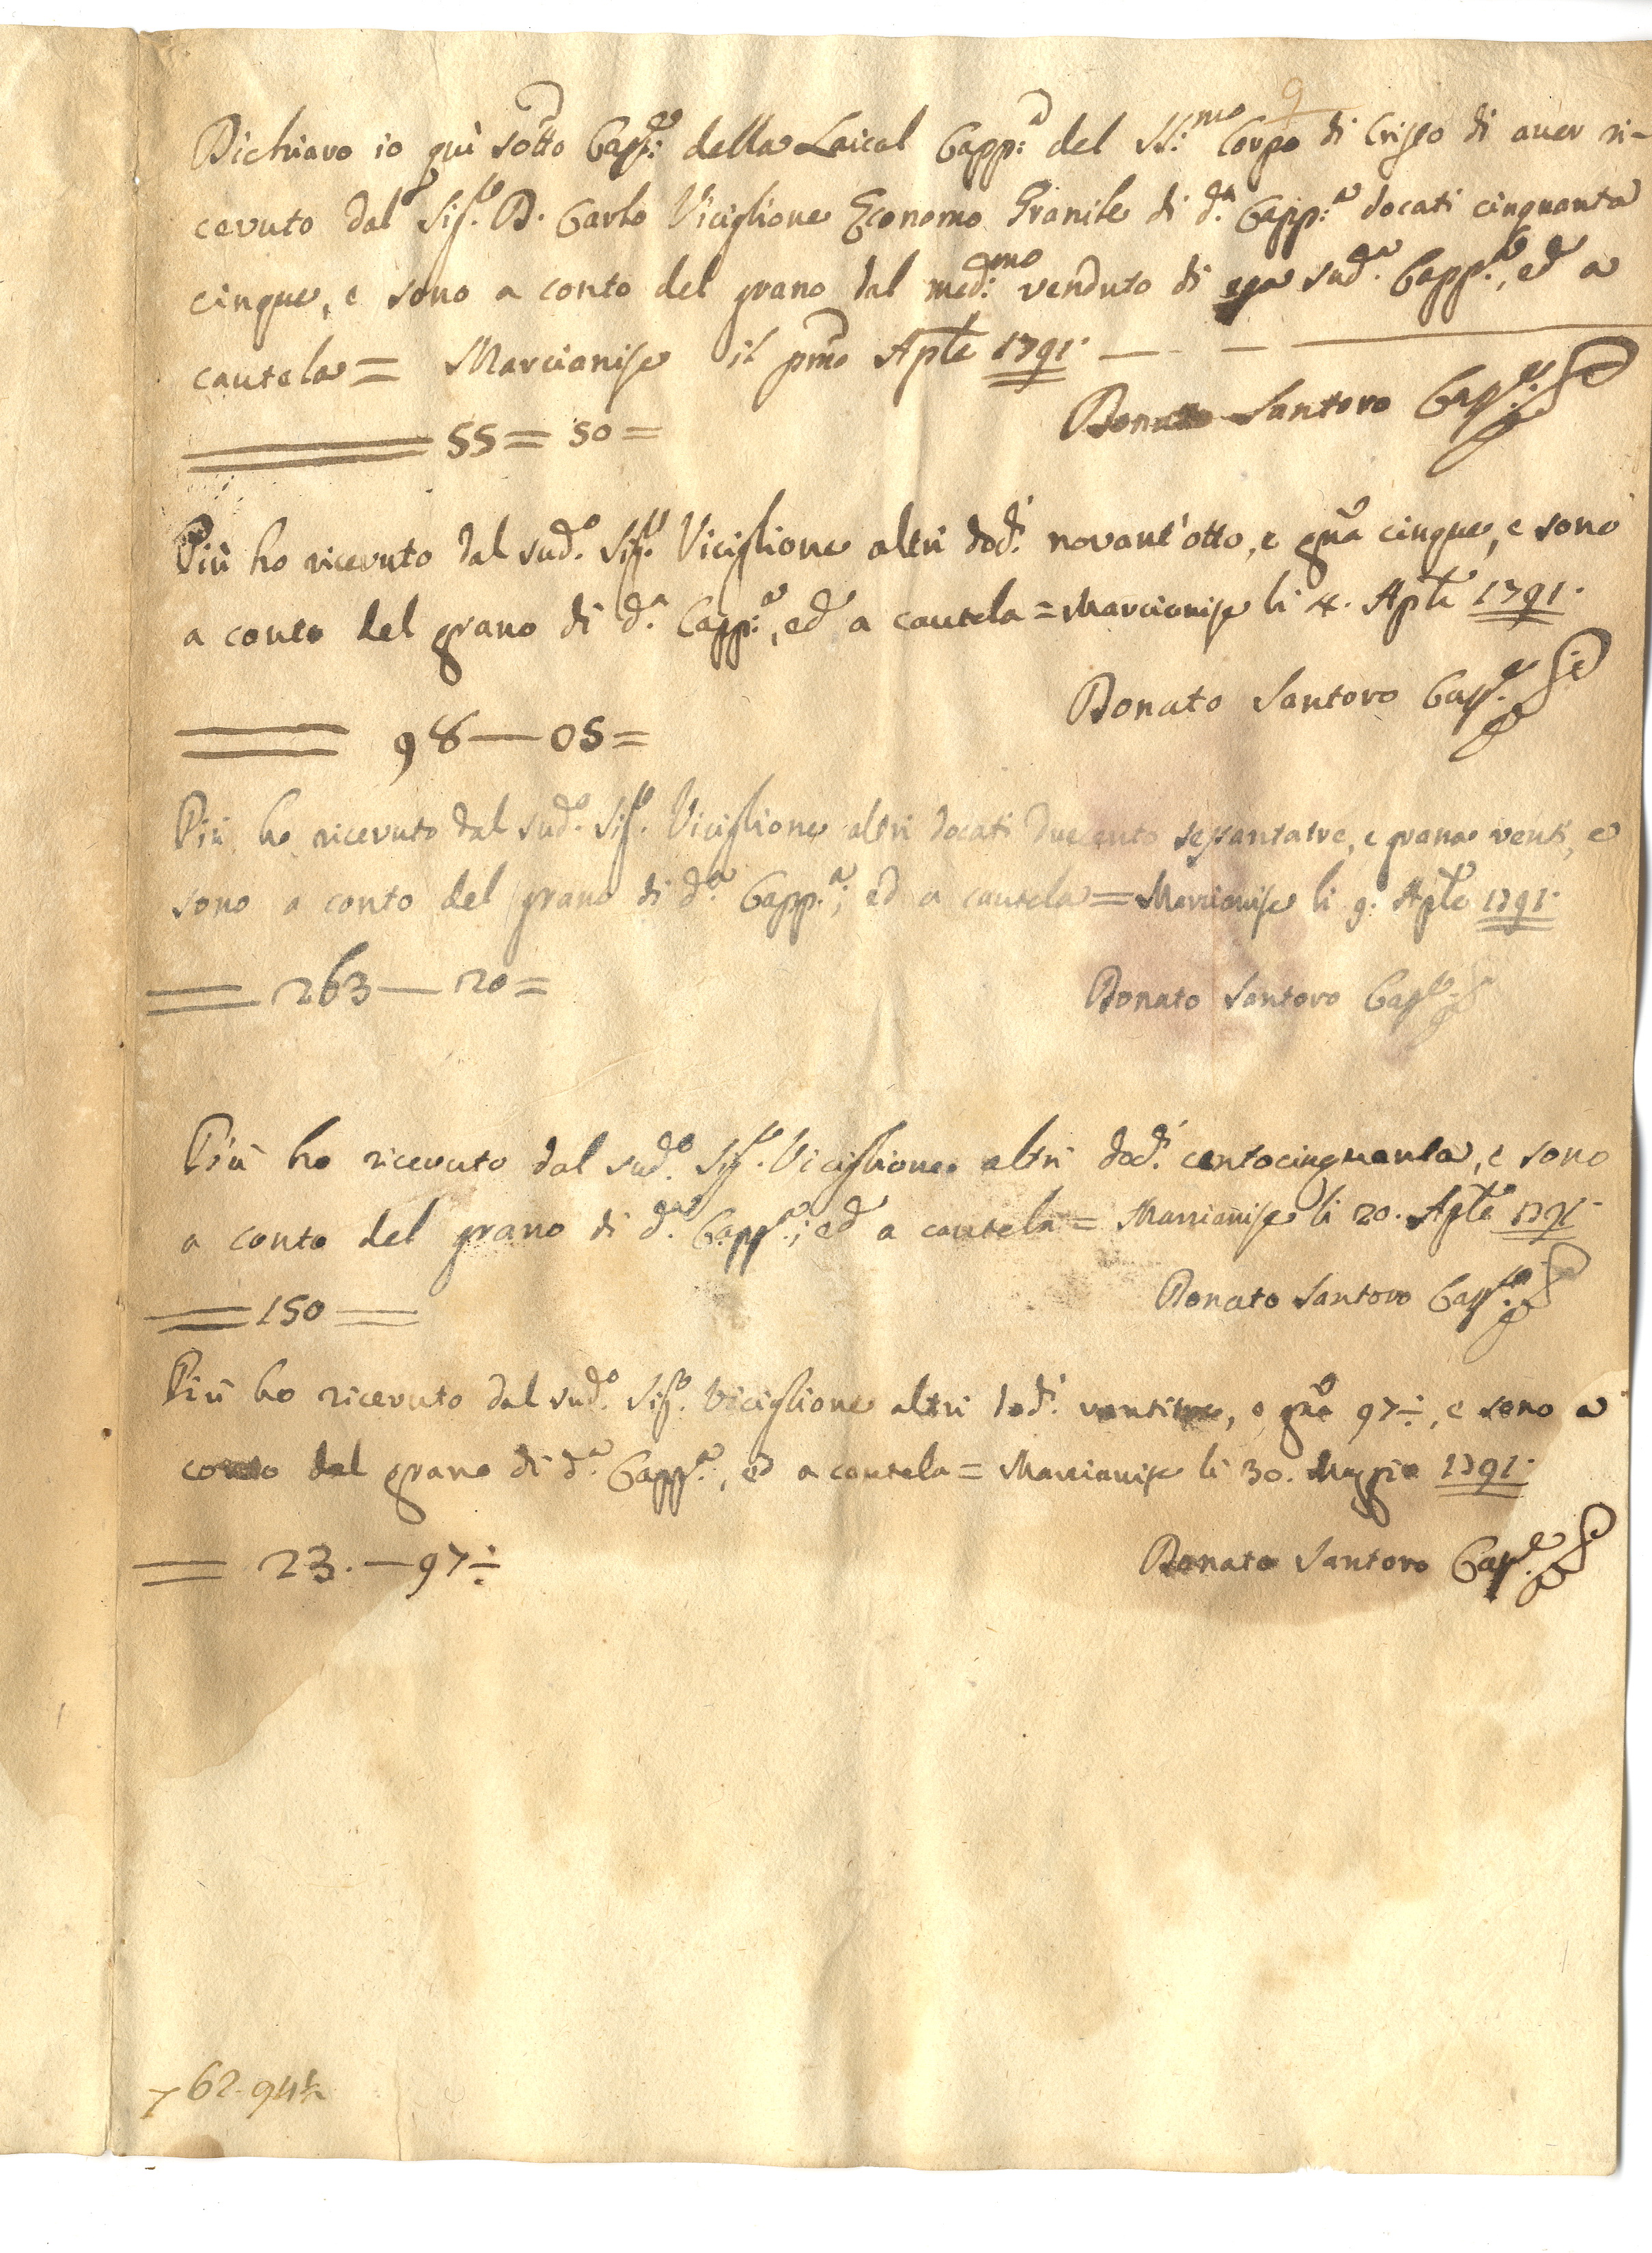 9
Dichiaro io quì sotto Capp:e della Laical Capp:a del SS:mo Corpo di Cristo di aver ri-
cevuto dal Sig.r D. Carlo Viciglione Economo Granile di d.a Capp:a docati cinquanta
cinque, e sono a conto del grano dal med:mo venduto di essa sud.a Capp.a, ed a
cautela = Marcianise il pmo Aple 1791. — - —
Donato Santoro Capp.e
55 = 50 =
Più ho ricevuto dal sud.o Sig.r Viciglione altri dod.i novant'otto, e gna cinque, e sono
a conto del grano di d.a Capp:a, ed a cautela = Marcianise li 4. Aple 1791.
Donato Santoro Capp.e
98 — 05 =
Più ho ricevuto dal sud.o Sig.r Viciglione altri docati duecento sessantatre, e grana venti, e
sono a conto del grano di d.a Capp.a; ed a cautela = Marcianise li 9. Aple 1791.
263 — 20 =
Donato Santoro Capp.e
Più ho ricevuto dal sud.o Sig.r Viciglione altri dod.i centocinquanta, e sono
a conto del grano di d.a Capp.a; ed a cautela = Marcianise li 20. Aple 1791
150
Donato Santoro Capp.e
Più ho ricevuto dal sud.o Sig.r Viciglione altri dod.i ventitre, e gna 97÷, e sono a
conto del grano di d.a Capp.a, ed a cautela = Marcianise li 30. Maggio 1791.
23. — 97÷
Donato Santoro Capp.e
62-94½